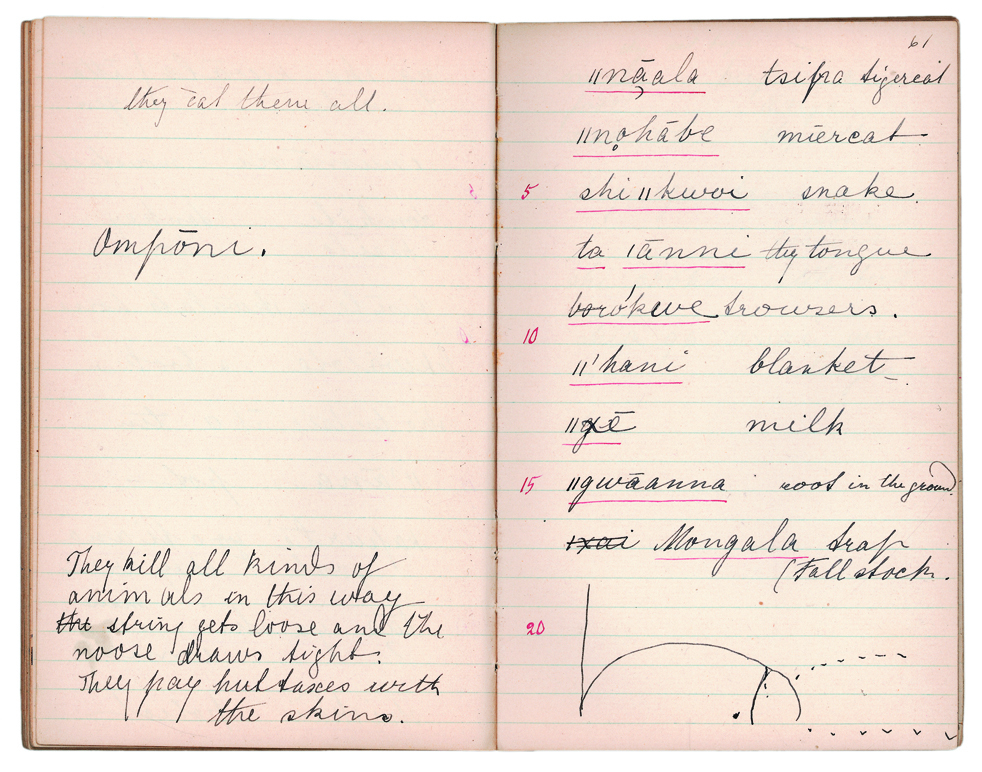 they ēat them all.
Ompōni.
They kill all kinds of
animals in this way
the string gets loose and the
noose draws tight.
They pay hut taxes with
the skins.
61
ǁnā̦ala tsipa tigercat
ǁno̥hābe mīercat
5 shi ǁkwoi snake
ta ǀānni thy tongue
boro'kwe trowsers.
10
ǁ'hani blanket
ǁxē milk
15 ǁgwāanna root in the ground
ǂxai Mongala trap
(Fall stock.
20